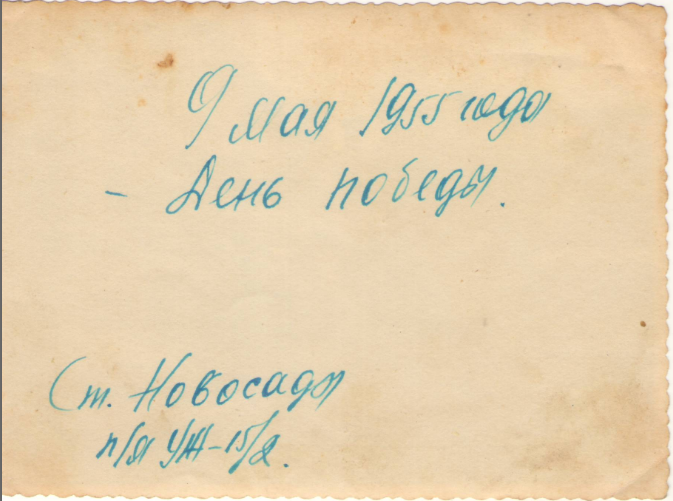 9 мая 1955 года
- День победы.
Ст. Новосады
п/я УЖ-15/2.